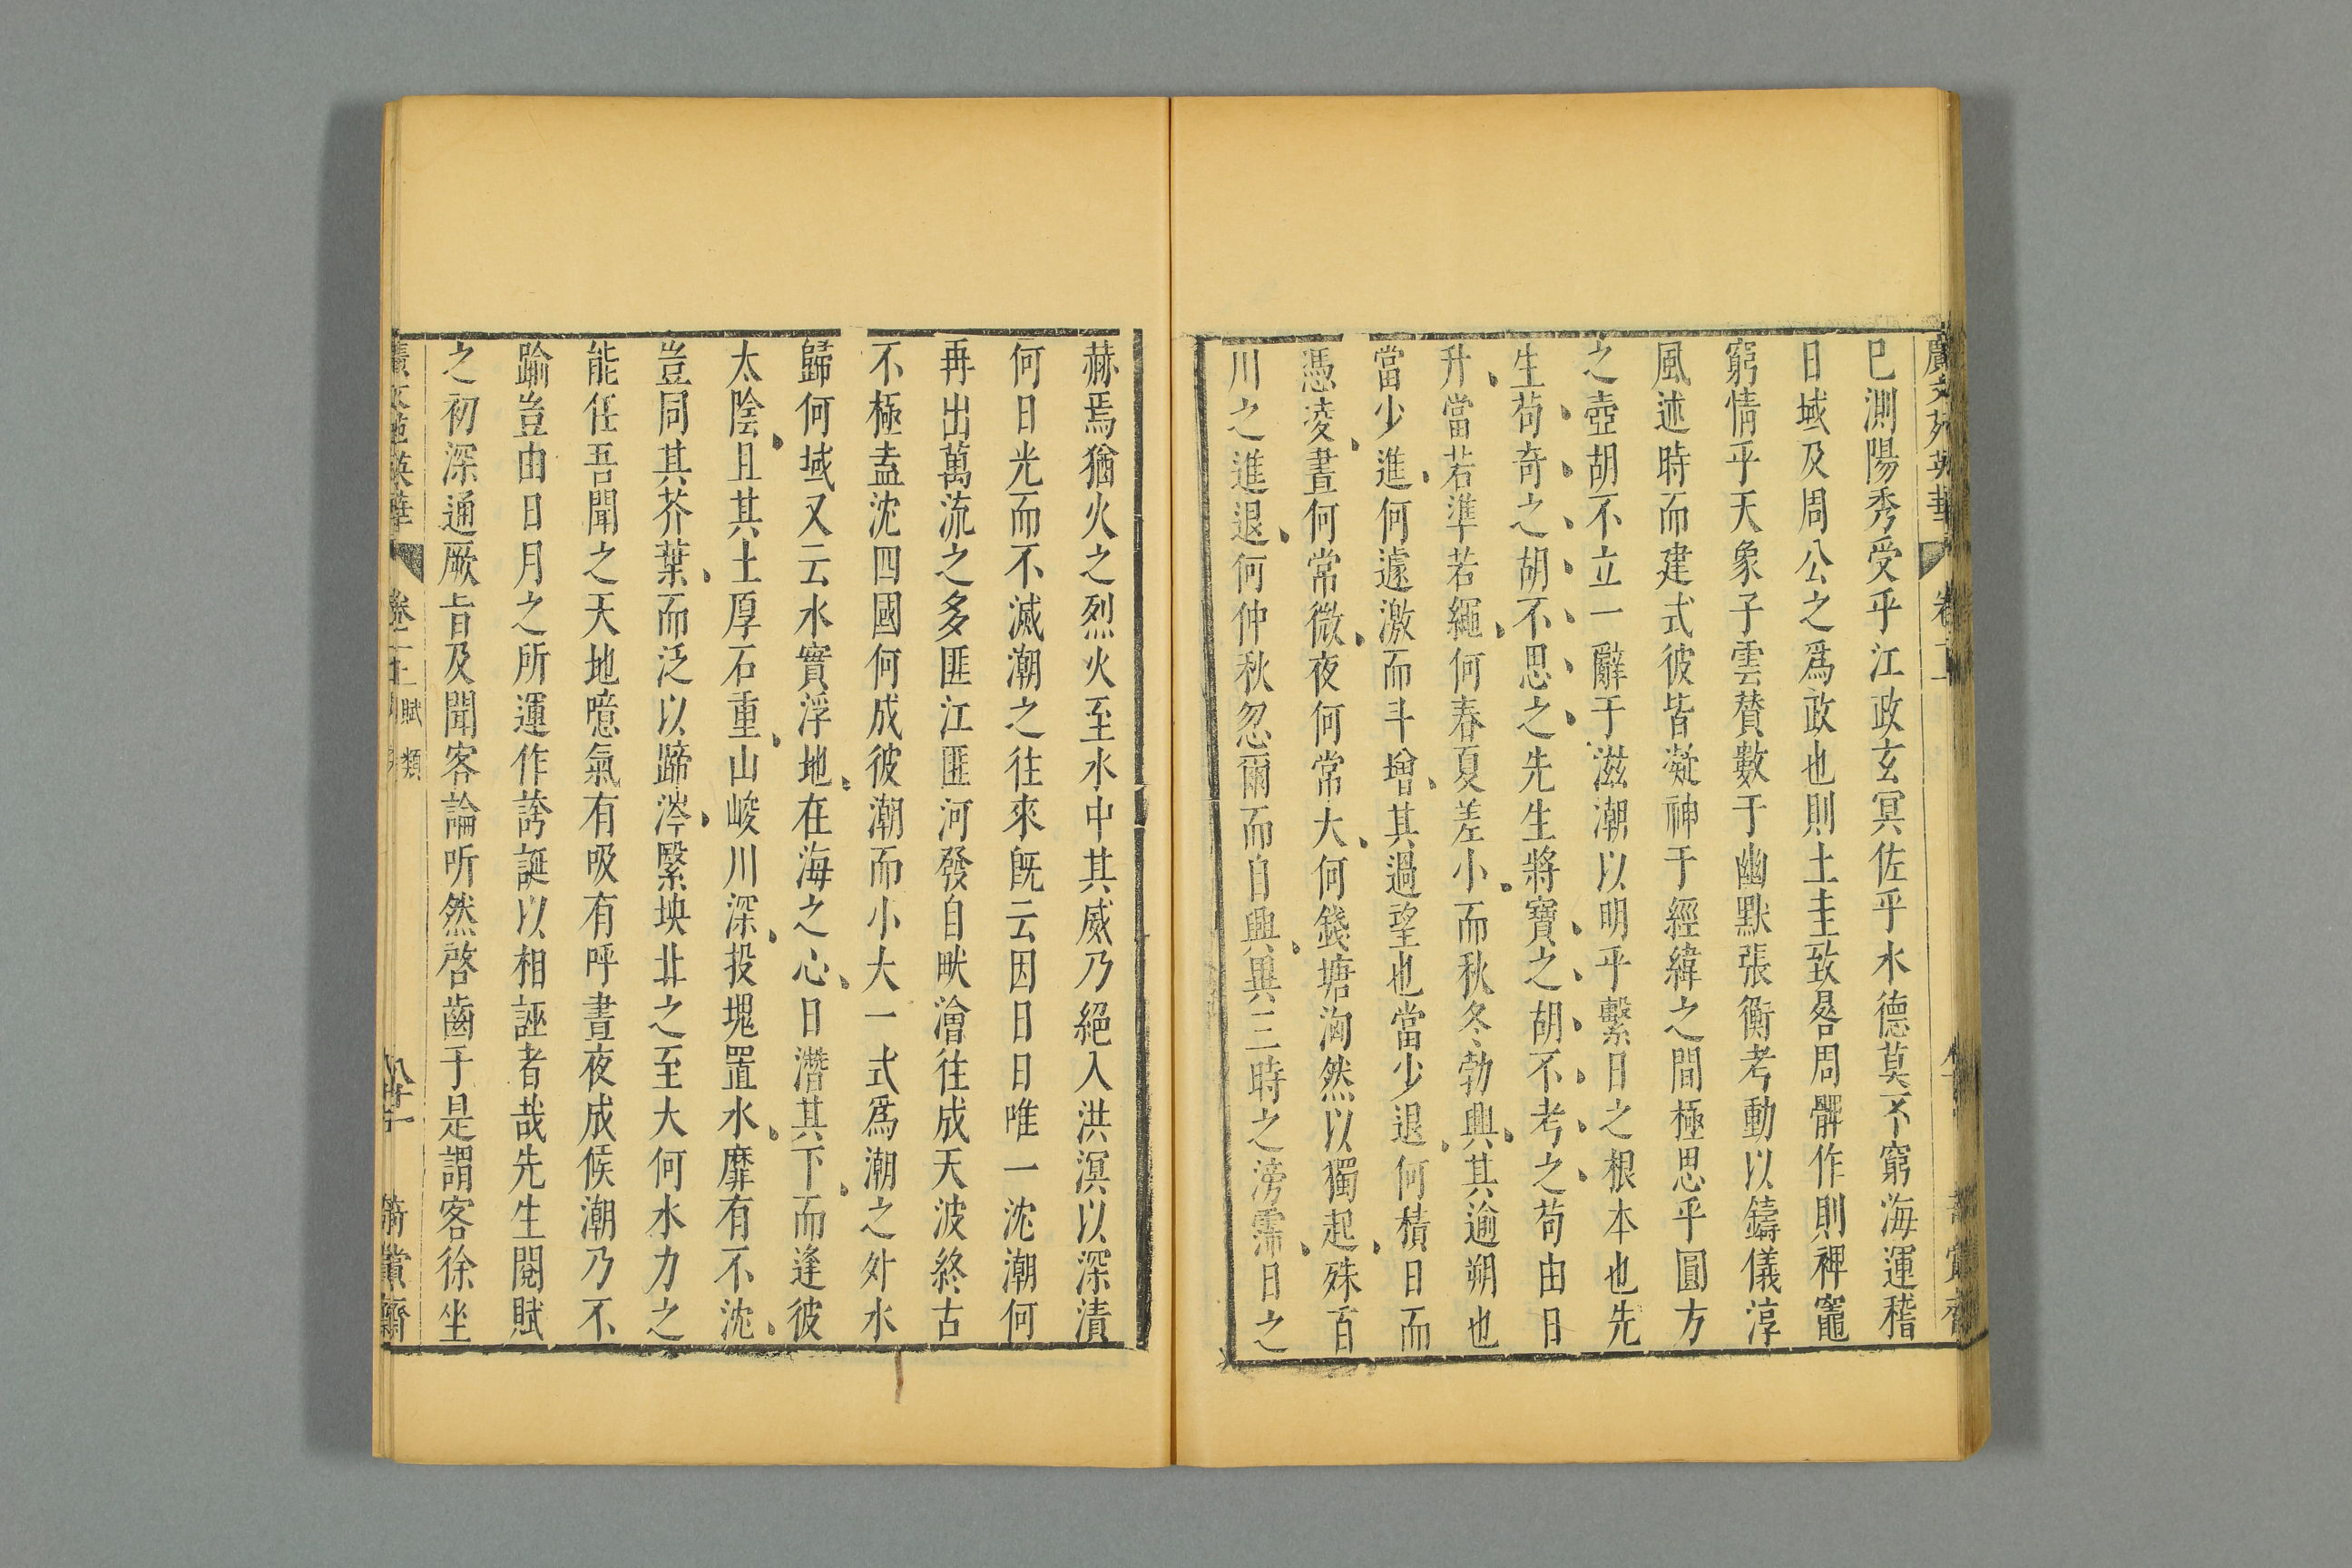 廣文苑英華
卷二
已測陽秀受乎江政玄冥佐乎水德莫不窮海運稽
日域及周公之爲政也則土圭致晷周髀作則裨竈
窮情乎天象子雲贊數于幽默張衡考動以鑄儀淳
風述時而建式彼皆凝神于經緯之間極思乎圓方
之壺胡不立一辭于滋潮以明乎繫日之根本也先
生苟奇之胡不思之先生將寶之胡不考之苟由日
升當若準若繩何春夏差小而秋冬勃興其逾朔也
當少進何遽激而斗增其過望也當少退何積日而
憑凌晝何常微夜何常大何錢塘洶然以獨起殊百
川之進退何仲秋忽爾而自興異三時之滂霈日之
赫焉猶火之烈火至水中其威乃絕入洪溟以深漬
何日光而不滅潮之往來旣云因日日唯一沈潮何
再出萬流之多匪江匪河發自畎澮往成天波終古
不極盍沈四國何成彼潮而小大一式爲潮之外水
歸何域又云水實浮地在海之心日潛其下而逢彼
太陰且其土厚石重山峻川深投塊置水靡有不沈
豈同其芥葉而泛以蹄涔繄坱北之至大何水力之
能任吾聞之天地噫氣有吸有呼晝夜成候潮乃不
踰豈由日月之所運作誇誕以相誣者哉先生閱賦
之初深通厥旨及聞客論听然啓齒于是謂客徐坐
廣文苑英華
賦
類